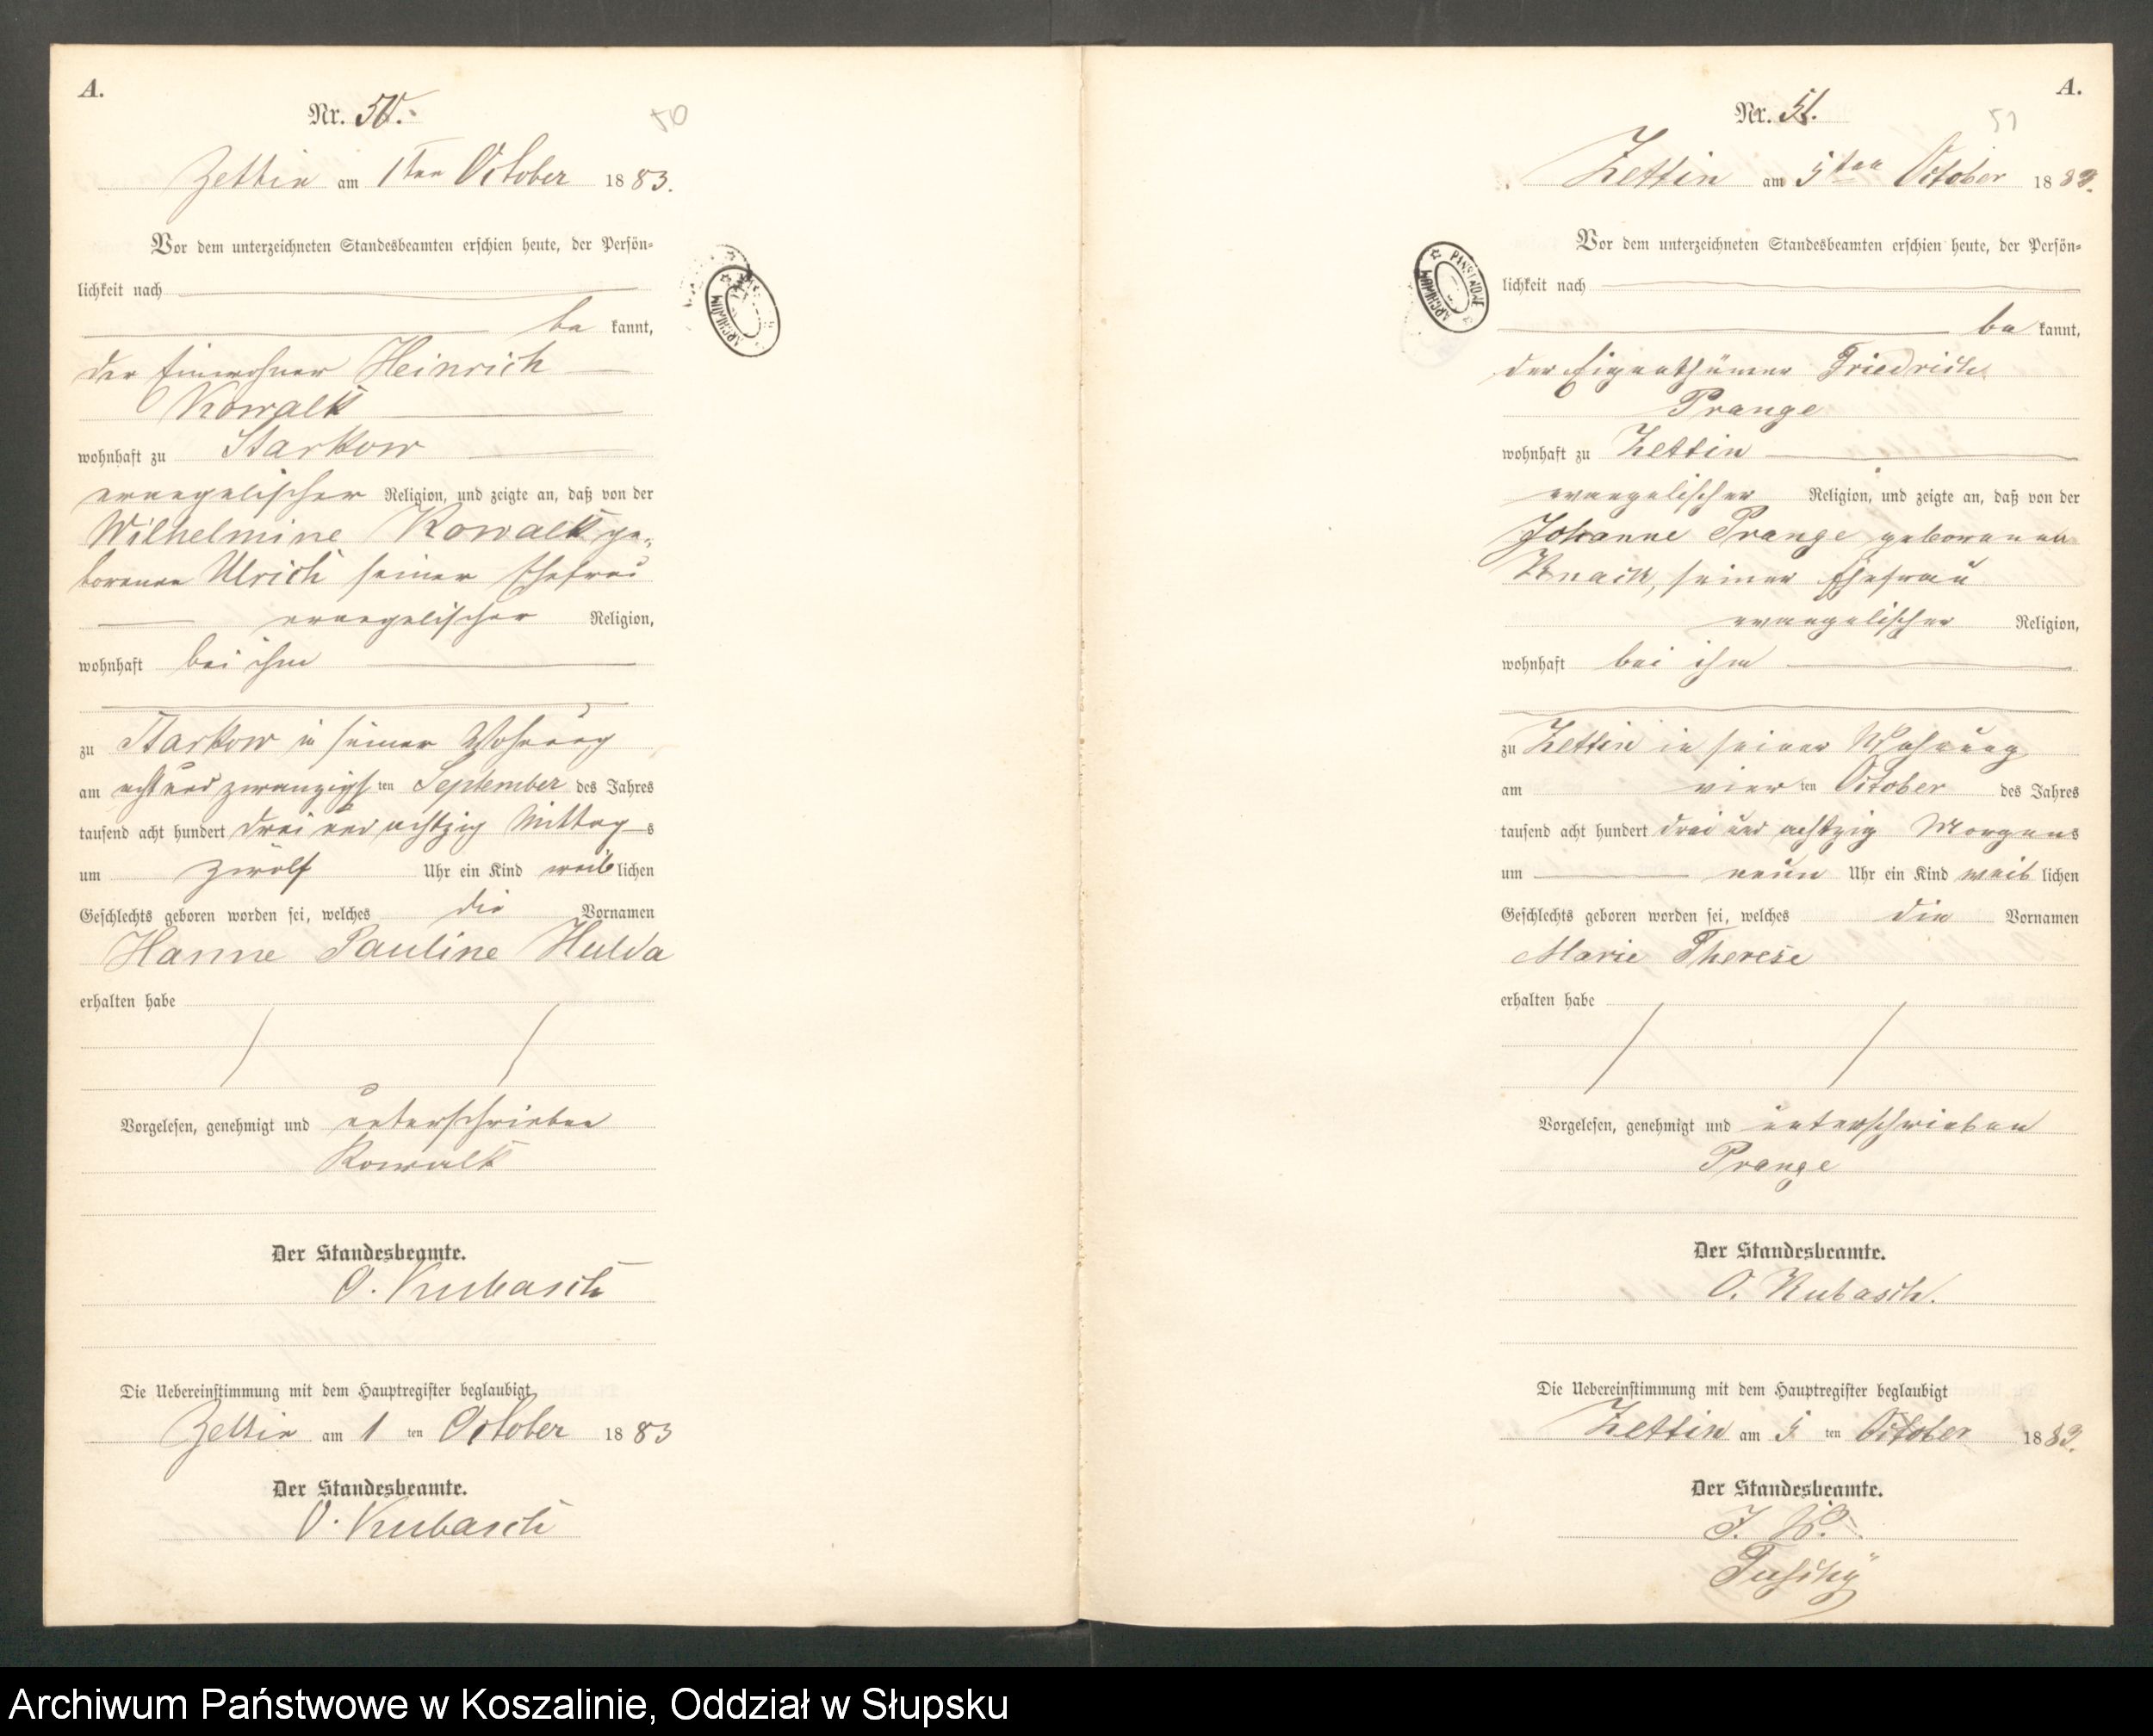 A.
Nr. 50.
50
Zettin am 1ten October 1883.
Vor dem unterzeichneten Standesbeamten erschien heute, der Persön-
lichkeit nach
be kannt,
der Einwohner Heinrich
Kowalk
wohnhaft zu Starkow
evangelischer Religion, und zeigte an, daß von der
Wilhelmine Kowalk ge-
borenen Ulrich seiner Ehefrau
evangelischer Religion,
wohnhaft bei ihm
zu Starkow in seiner Wohnung
am acht und zwanzigsten September des Jahres
tausend acht hundert drei und achtzig Mittags
um zwölf Uhr ein Kind weiblichen
Geschlechts geboren worden sei, welches die Vornamen
Hanne Pauline Hulda
erhalten habe
Vorgelesen, genehmigt und unterschrieben
Kowalk
Der Standesbeamte.
O. Kubasch
Die Uebereinstimmung mit dem Hauptregister beglaubigt
Zettin am 1 ten October 1883
Der Standesbeamte.
O. Kubasch
A.
Nr. 51.
51
Zettin am 5ten October 1883.
Vor dem unterzeichneten Standesbeamten erschien heute, der Persön-
lichkeit nach
be kannt,
der Eigenthümer Friedrich
Prange
wohnhaft zu Zettin
evangelischer Religion, und zeigte an, daß von der
Johanne Prange geborenen
Knack, seiner Ehefrau
evangelischer Religion,
wohnhaft bei ihm
zu Zettin in seiner Wohnung
am vierten October des Jahres
tausend acht hundert drei und achtzig Morgens
um neun Uhr ein Kind weiblichen
Geschlechts geboren worden sei, welches die Vornamen
Marie Therese
erhalten habe
Vorgelesen, genehmigt und unterschrieben
Prange
Der Standesbeamte.
O. Kubasch.
Die Uebereinstimmung mit dem Hauptregister beglaubigt
Zettin am 5 ten October 1883.
Der Standesbeamte.
J. V.
ARCHIWUM PAŃSTWOWE
Archiwum Państwowe w Koszalinie, Oddział w Słupsku